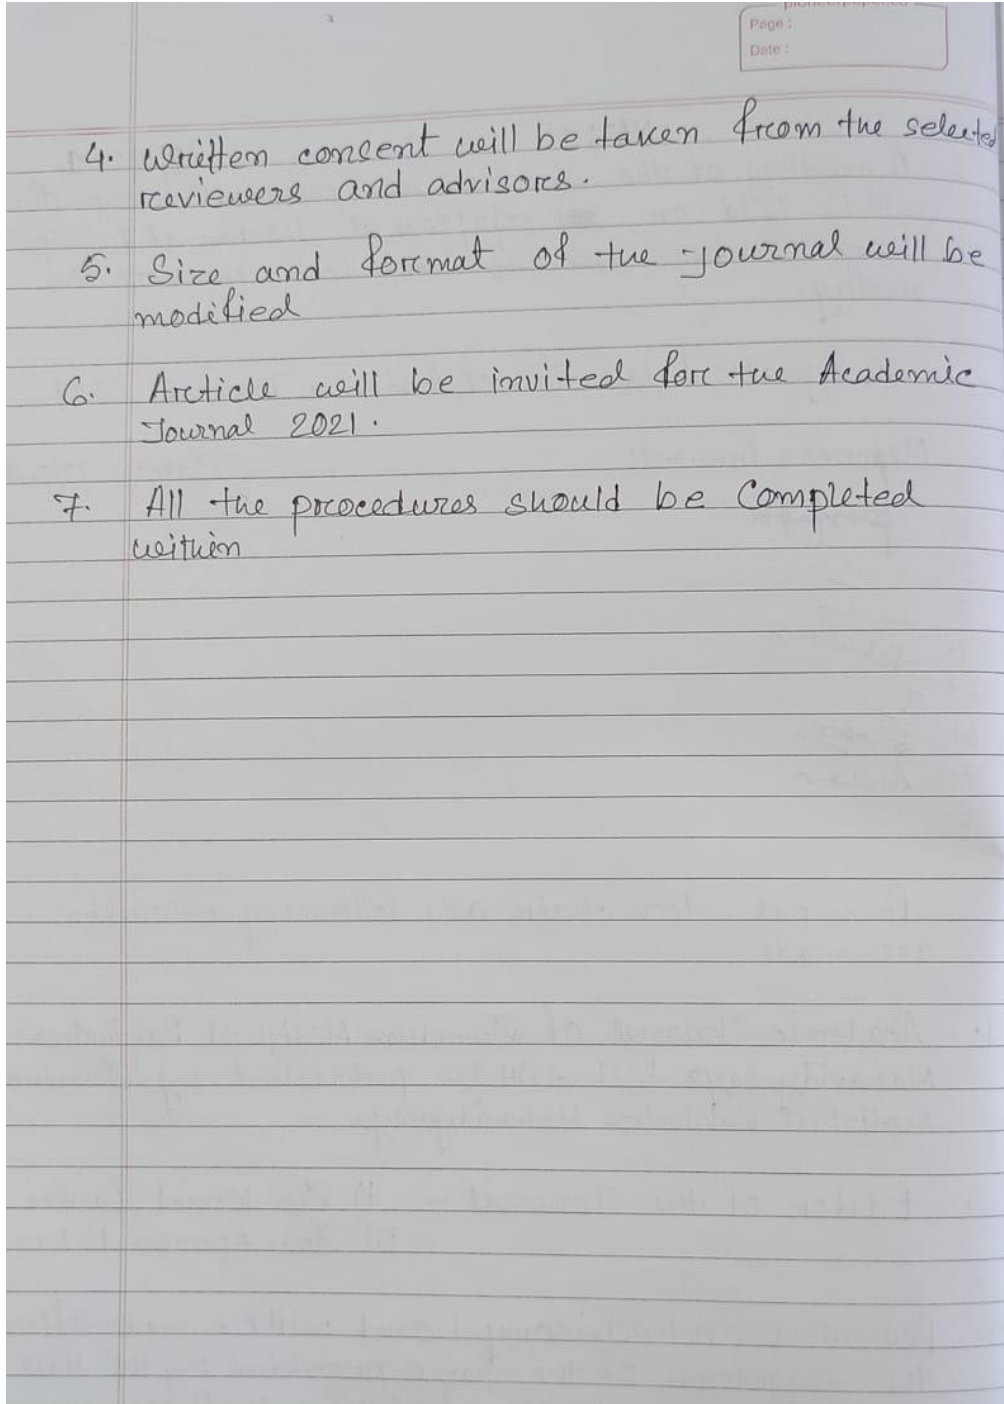 Page :
Date :
4. Written consent will be taken from the selected
reviewers and advisors.
5. Size and format of the journal will be
modified
6. Article will be invited for the Academic
Journal 2021.
7. All the procedures should be Completed
within